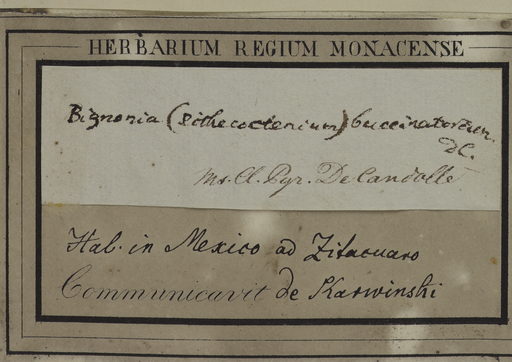 HERBARIUM REGIUM MONACENSE
Bignonia (Pithecoctenium) buccinatorium.
DC.
ms. Cl. Pyr. De Candolle
Hab. in Mexico ad Zitacuaro
Communicavit de Karwinski